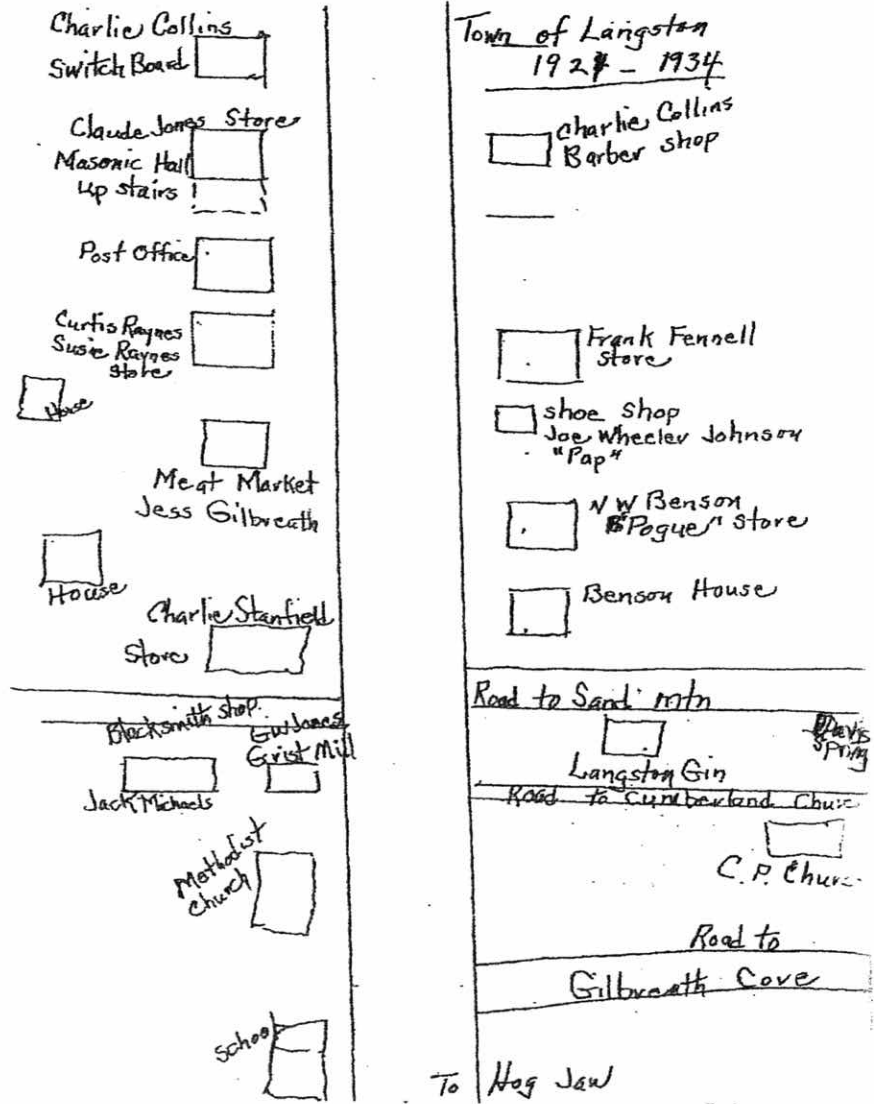 Town of Langston
1924 - 1934
Charlie Collins
Switch Board
Claude Jones Store
Masonic Hall
up stairs
Post Office
Curtis Raynes
Susie Raynes
store
House
Meat Market
Jess Gilbreath
House
Charlie Stanfield
Store
Blacksmith shop
Jack Michaels
GW Jones
Grist Mill
Methodist
Church
School
Charlie Collins
Barber shop
Frank Fennell
Store
shoe shop
Joe Wheeler Johnson
"Pap"
N W Benson
"Pogue" Store
Benson House
Road to Sand mtn
Davis
Spring
Langston Gin
Road to Cumberland Churc
C.P. Churc
Road to
Gilbreath Cove
To Hog Jaw